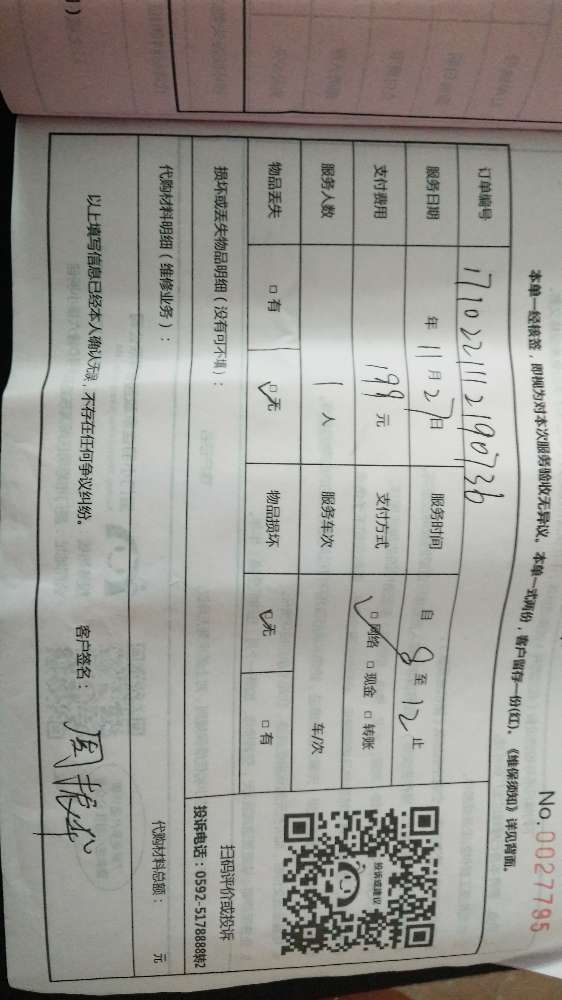 No. 0027795
本单一经核签，即视为对本次服务验收无异议。本单一式两份，客户留存一份(红)。《维保须知》详见背面。
订单编号 1710221112190736
服务日期 年 11 月 27 日 服务时间 自 8 至 12 止
支付费用 199 元 支付方式 ☑ 网络 □ 现金 □ 转账
服务人数 1 人 服务车次 车/次
物品丢失 □ 有 ☑ 无 物品损坏 ☑ 无 □ 有
投诉或建议
扫码评价或投诉
投诉电话：0592-5178888转2
损坏或丢失物品明细（没有可不填）：
代购材料明细（维修业务）： 代购材料总额： 元
以上填写信息已经本人确认无误，不存在任何争议纠纷。 客户签名：